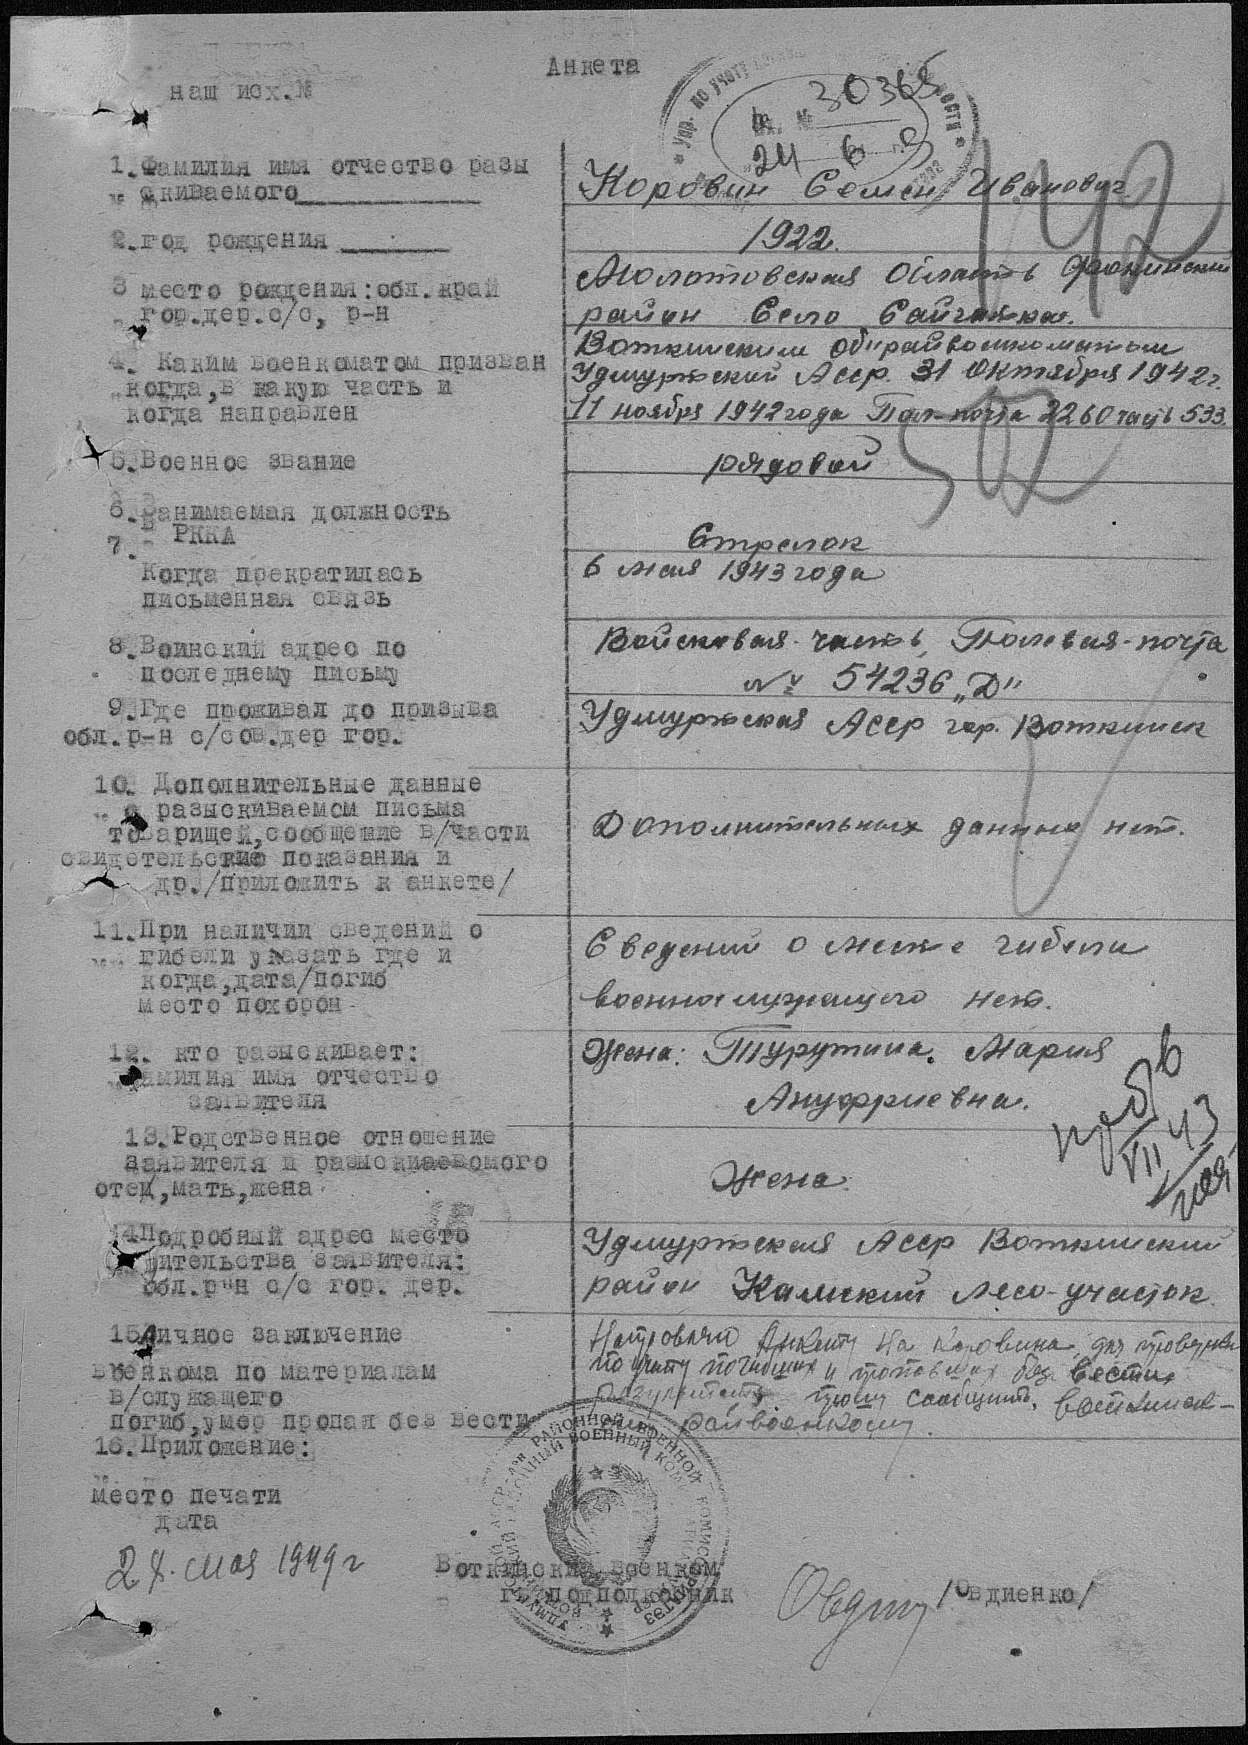 Анкета
наш исх.№
30365
24 6 9
1.Фамилия имя отчество разы
скиваемого
Коровин Семен Иванович
142
2.год рождения
1922.
3 место рождения:обл.край
гор.дер.с/с, р-н
Молотовская область Фокинский
район Село Сайгатка.
4. Каким военкоматом призван
когда,в какую часть и
когда направлен
Воткинским объ райвоенкоматом
Удмуртский Асср. 31 Октября 1942г.
11 ноября 1942 года Пол-почта 2260 часть 533.
5.Военное звание
рядовой
502
6.Занимаемая должность
в РККА
Стрелок
7.
Когда прекратилась
письменная связь
6 мая 1943 года
8.Воинский адрес по
последнему письму
Войсковая-часть, Полевая-почта
№ 54236 „Д"
9.Где проживал до призыва
обл.р-н с/сов.дер гор.
Удмуртская Асср гор. Воткинск
10. Дополнительные данные
о разыскиваемом письма
товарищей,сообщение в/части
свидетельские показания и
др./приложить к анкете/
Дополнительных данных нет.
11.При наличии сведений о
гибели указать где и
когда,дата/погиб
место похорон
Сведений о месте гибели
военнослужащего нет.
12. кто разыскивает:
фамилия имя отчество
заявителя
Жена: Турутина. Мария
Ануфриевна.
13.Родственное отношение
заявителя и разыскиаевомого
отец,мать,жена
Жена.
VII 43
14Подробный адрес место
жительства заявителя:
обл.р-н с/с гор. дер.
Удмуртская Асср Воткинский
район Камский лесо-участок.
15Личное заключение
военкома по материалам
в/служащего
погиб,умер пропал без вести
Направляю Анкету на Коровина для проверки
по учету погибших и пропавших без вести
Результаты прошу сообщить. Воткинск-
райвоенкому.
16.Приложение:
место печати
дата
28. мая 1949 г
Воткинский военком
гв.подполковник
/Овдиенко/